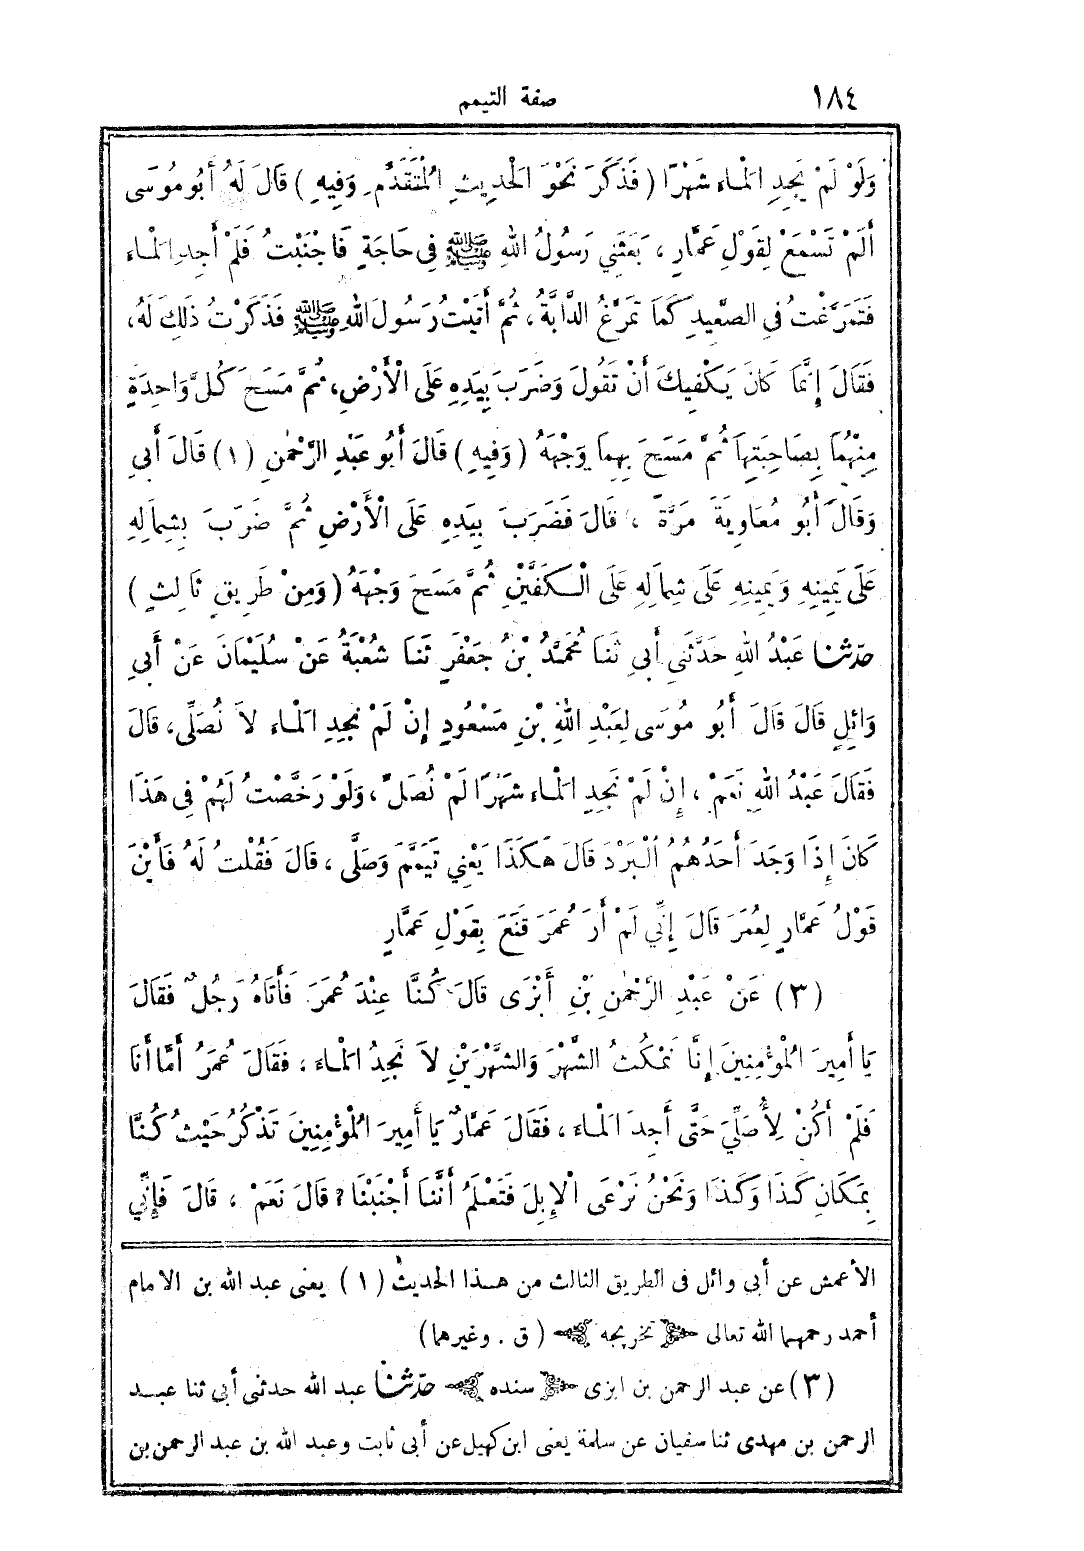 ١٨٤ صفة التيمم
وَلَوْ لَمْ يَجِدِ الْمَاءَ شَهْرًا (فَذَكَرَ نَحْوَ الْحَدِيثِ الْمُتَقَدِّمِ وَفِيهِ) قَالَ لَهُ أَبُو مُوسَى
أَلَمْ تَسْمَعْ لِقَوْلِ عَمَّارٍ، بَعَثَنِي رَسُولُ اللهِ ﷺ فِي حَاجَةٍ فَأَجْنَبْتُ فَلَمْ أَجِدِ الْمَاءَ
فَتَمَرَّغْتُ فِي الصَّعِيدِ كَمَا تَمَرَّغُ الدَّابَّةُ، ثُمَّ أَتَيْتُ رَسُولَ اللهِ ﷺ فَذَكَرْتُ ذَلِكَ لَهُ،
فَقَالَ إِنَّمَا كَانَ يَكْفِيكَ أَنْ تَقُولَ وَضَرَبَ بِيَدِهِ عَلَى الْأَرْضِ، ثُمَّ مَسَحَ كُلَّ وَاحِدَةٍ
مِنْهُمَا بِصَاحِبَتِهَا ثُمَّ مَسَحَ بِهِمَا وَجْهَهُ (وَفِيهِ) قَالَ أَبُو عَبْدِ الرَّحْمٰنِ (١) قَالَ أَبِي
وَقَالَ أَبُو مُعَاوِيَةَ مَرَّةً، قَالَ فَضَرَبَ بِيَدِهِ عَلَى الْأَرْضِ ثُمَّ ضَرَبَ بِشِمَالِهِ
عَلَى يَمِينِهِ وَيَمِينِهِ عَلَى شِمَالِهِ عَلَى الْكَفَّيْنِ ثُمَّ مَسَحَ وَجْهَهُ (وَمِنْ طَرِيقٍ ثَالِثٍ)
حَدَّثَنَا عَبْدُ اللهِ حَدَّثَنِي أَبِي ثَنَا مُحَمَّدُ بْنُ جَعْفَرٍ ثَنَا شُعْبَةُ عَنْ سُلَيْمَانَ عَنْ أَبِي
وَائِلٍ قَالَ قَالَ أَبُو مُوسَى لِعَبْدِ اللهِ بْنِ مَسْعُودٍ إِنْ لَمْ نَجِدِ الْمَاءَ لَا نُصَلِّى، قَالَ
فَقَالَ عَبْدُ اللهِ نَعَمْ، إِنْ لَمْ نَجِدِ الْمَاءَ شَهْرًا لَمْ نُصَلِّ، وَلَوْ رَخَّصْتُ لَهُمْ فِي هَذَا
كَانَ إِذَا وَجَدَ أَحَدُهُمُ الْبَرْدَ قَالَ هَكَذَا يَعْنِي تَيَمَّمَ وَصَلَّى، قَالَ فَقُلْتُ لَهُ فَأَيْنَ
قَوْلُ عَمَّارٍ لِعُمَرَ قَالَ إِنِّي لَمْ أَرَ عُمَرَ قَنَعَ بِقَوْلِ عَمَّارٍ
(٣) عَنْ عَبْدِ الرَّحْمٰنِ بْنِ أَبْزَى قَالَ كُنَّا عِنْدَ عُمَرَ فَأَتَاهُ رَجُلٌ فَقَالَ
يَا أَمِيرَ الْمُؤْمِنِينَ إِنَّا نَمْكُثُ الشَّهْرَ وَالشَّهْرَيْنِ لَا نَجِدُ الْمَاءَ، فَقَالَ عُمَرُ أَمَّا أَنَا
فَلَمْ أَكُنْ لِأُصَلِّيَ حَتَّى أَجِدَ الْمَاءَ، فَقَالَ عَمَّارٌ يَا أَمِيرَ الْمُؤْمِنِينَ تَذْكُرُ حَيْثُ كُنَّا
بِمَكَانِ كَذَا وَكَذَا وَنَحْنُ نَرْعَى الْإِبِلَ فَتَعْلَمُ أَنَّنَا أَجْنَبْنَا؟ قَالَ نَعَمْ، قَالَ فَإِنِّي
الأعمش عن أبي وائل فى الطريق الثالث من هذا الحديث (١) يعنى عبد الله بن الامام
أحمد رحمهما الله تعالى تخريجه (ق. وغيرهما)
(٣) عن عبد الرحمن بن ابزى سنده حدّثنا عبد الله حدثنى أبى ثنا عبد
الرحمن بن مهدى ثنا سفيان عن سلمة يعنى ابن كهيل عن أبى ثابت وعبد الله بن عبد الرحمن بن